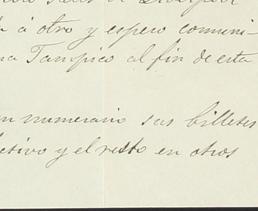 á otro y espero comuni-
Tampico al fin de esta
numerario sus billetes
y el resto en otros